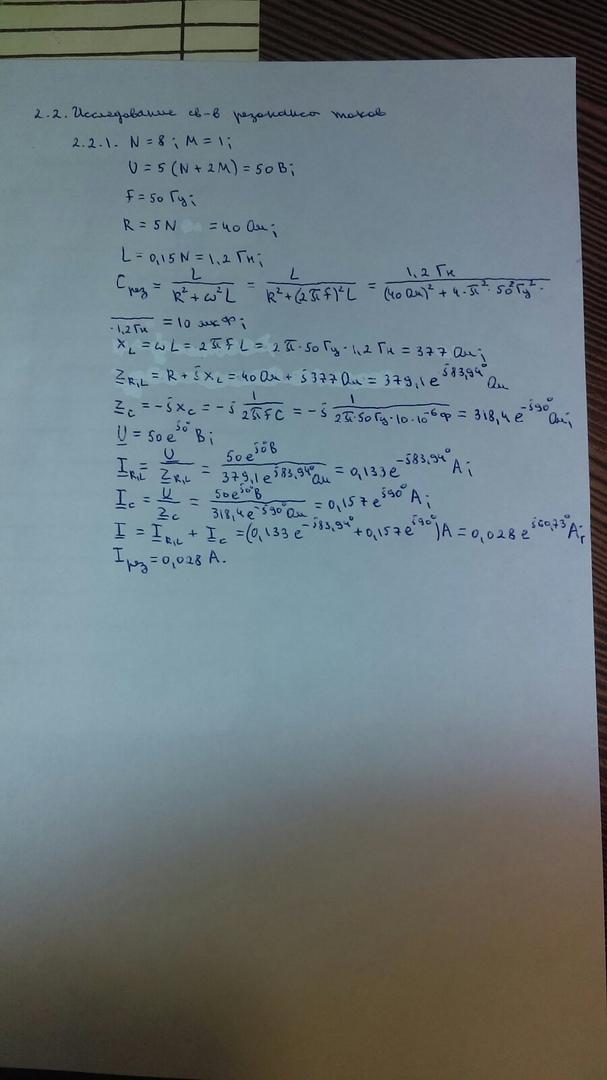 2.2. Исследование св-в резонанса токов
2.2.1. N = 8; M = 1;
U = 5 (N + 2M) = 50 В;
f = 50 Гц;
R = 5N = 40 Ом;
L = 0,15N = 1,2 Гн;
C_рез = L / (R² + ω²L) = L / (R² + (2πf)²L) = 1,2 Гн / ((40 Ом)² + 4·π²·50²Гц²·
·1,2 Гн) = 10 мкФ;
X_L = ωL = 2πfL = 2π·50 Гц·1,2 Гн = 377 Ом;
Z_R,L = R + jX_L = 40 Ом + j377 Ом = 379,1 e^j83,94° Ом
Z_C = -jX_C = -j 1 / (2πfC) = -j 1 / (2π·50 Гц·10·10⁻⁶ Ф) = 318,4 e^-j90° Ом;
U = 50 e^j0° В;
I_R,L = U / Z_R,L = 50 e^j0° В / 379,1 e^j83,94° Ом = 0,133 e^-j83,94° А;
I_C = U / Z_C = 50 e^j0° В / 318,4 e^-j90° Ом = 0,157 e^j90° А;
I = I_R,L + I_C = (0,133 e^-j83,94° + 0,157 e^j90°) А = 0,028 e^j60,73° А;
I_рез = 0,028 А.